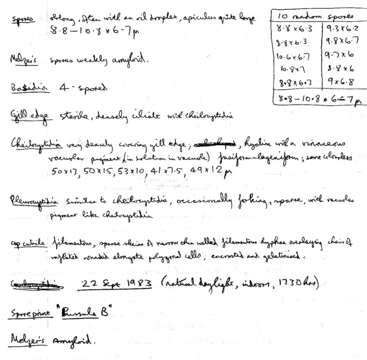 Spores oblong, often with an oil droplet, apiculus quite large
8.8 – 10.8 × 6–7 µ
10 random spores
8.8 × 6.3 9.3 × 6.2
8.8 × 6.3 9.8 × 6.7
10.6 × 6.7 9.7 × 6
10.8 × 7 8.8 × 6
8.8 × 6.3 9 × 6.8
8.8 – 10.8 × 6–7 µ
Melzer's spores weakly amyloid.
Basidia 4-spored
Gill edge sterile, densely ciliate with cheilocystidia
Cheilocystidia very densely covering gill edge, hyaline with a vinaceous
vacuolar pigment (in solution in vacuole) fusiform-lageniform, some colourless
50×17, 50×15, 53×10, 41×7.5, 49×12 µ
Pleurocystidia similar to cheilocystidia, occasionally forking, sparse, with vacuolar
pigment like cheilocystidia
Cap cuticle filamentous, sparse chains of narrow thin walled filamentous hyphae overlaying chains of
inflated rounded elongate polygonal cells, encrusted and gelatinised.
22 Sept 1983 (natural daylight, indoors, 1730 hrs)
Spore print "Russula B"
Melzer's Amyloid.